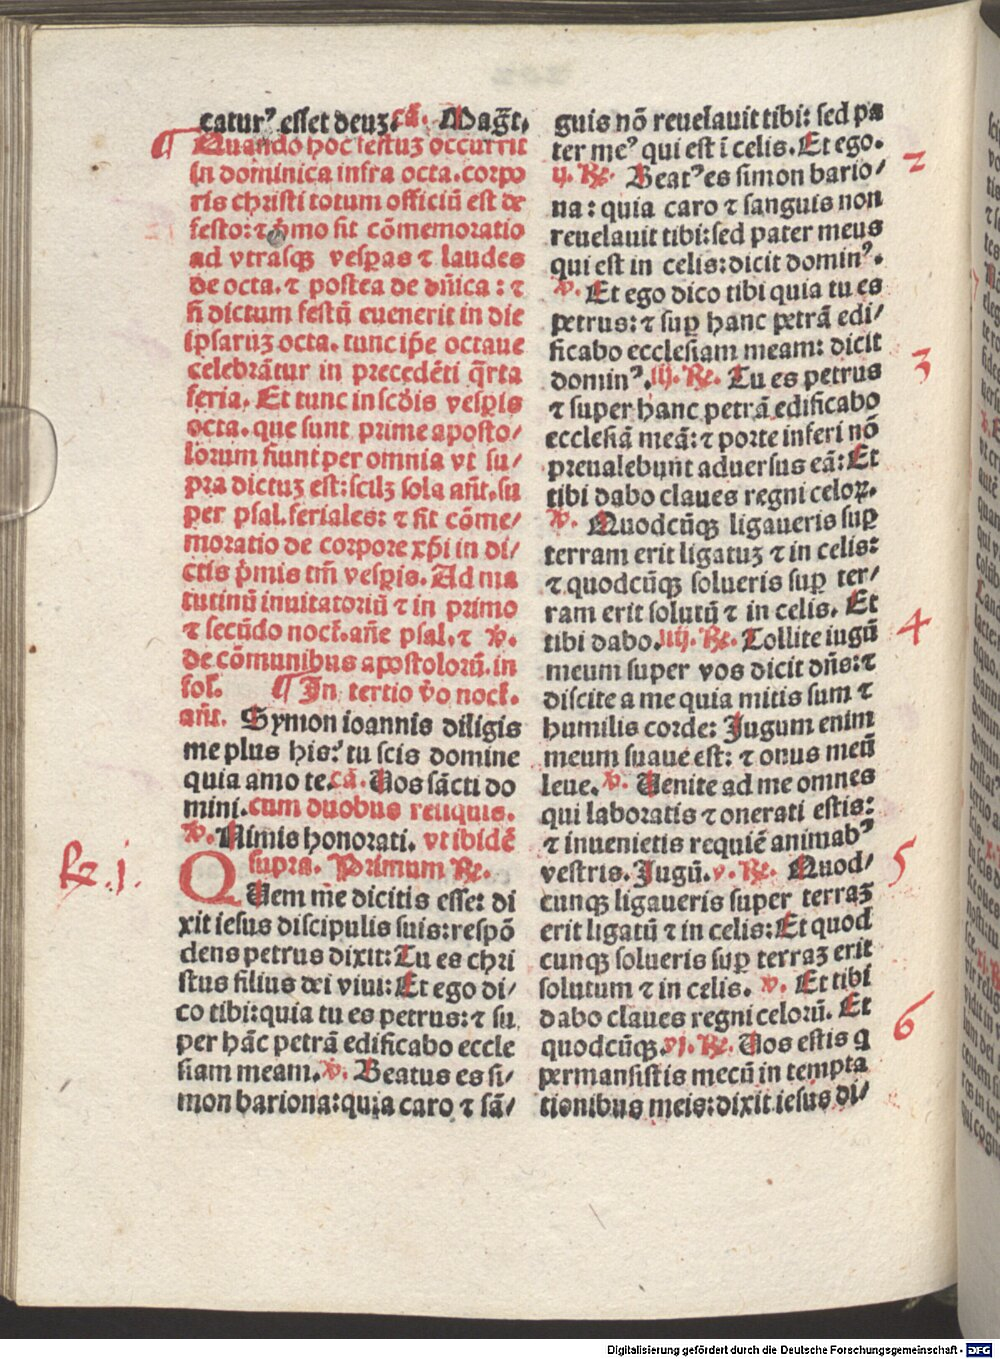 catur⁹ esset deuʒ. cā. Mag̅t.
¶ Quando hoc festuʒ occurrit
in dominica infra octa. corpo
ris christi totum officiū est de
festo: ⁊ p̄mo fit cōmemoratio
ad vtrasqꝫ vesꝑas ⁊ laudes
de octa. ⁊ postea de dn̄ica: ⁊
si dictum festū euenerit in die
ipsaruʒ octa. tunc ip̄e octaue
celebrātur in precedēti q̄rta
feria. Et tunc in scd̄is vesꝑis
octa. que sunt prime aposto/
lorum fiunt per omnia vt su/
pra dictuʒ est: scilʒ sola an̄t. su
per psal. feriales: ⁊ fit cōme/
moratio de corpore xp̄i in di/
ctis p̄mis tm̄ vesꝑis. Ad ma
tutinū inuitatoriū ⁊ in primo
⁊ secūdo noct. an̄e psal. ⁊ ℣.
de cōmunibus apostolorū. in
fol. ¶ In tertio v̄o noct.
an̄t. Symon ioannis diligis
me plus his: tu scis domine
quia amo te. cā. Uos sācti do
mini. cum duobus reliquis.
℣. Nimis honorati. vt ibidē
supra. Primum ℟.
℟. j.
QUem me̅ dicitis esse: di
xit iesus discipulis suis: respō
dens petrus dixit: Tu es chri
stus filius dei viui: Et ego di/
co tibi: quia tu es petrus: ⁊ su
per hāc petrā edificabo eccle
siam meam. ℣. Beatus es si/
mon bariona: quia caro ⁊ sā/
guis nō reuelauit tibi: sed pa
ter me⁹ qui est ī celis. Et ego.
ij. ℟. Beat⁹ es simon bario/ 2
na: quia caro ⁊ sanguis non
reuelauit tibi: sed pater meus
qui est in celis: dicit domin⁹.
℣. Et ego dico tibi quia tu es
petrus: ⁊ suꝑ hanc petrā edi/
ficabo ecclesiam meam: dicit
domin⁹. iij. ℟. Tu es petrus 3
⁊ super hanc petrā edificabo
ecclesiā meā: ⁊ porte inferi nō
preualebunt aduersus eā: Et
tibi dabo claues regni celoꝝ.
℣. Quodcūqꝫ ligaueris suꝑ
terram erit ligatuʒ ⁊ in celis:
⁊ quodcūqꝫ solueris suꝑ ter/
ram erit solutū ⁊ in celis. Et
tibi dabo. iiij. ℟. Tollite iugū 4
meum super vos dicit dn̄s: ⁊
discite a me quia mitis sum ⁊
humilis corde: Jugum enim
meum suaue est: ⁊ onus meū
leue. ℣. Uenite ad me omnes
qui laboratis ⁊ onerati estis:
⁊ inuenietis requiē animab⁹
vestris. Jugū. v. ℟. Quod/ 5
cunqꝫ ligaueris super terraʒ
erit ligatū ⁊ in celis: Et quod
cunqꝫ solueris suꝑ terraʒ erit
solutum ⁊ in celis. ℣. Et tibi
dabo claues regni celorū. Et
quodcūqꝫ. vj. ℟. Uos estis q 6
permansistis mecū in tempta
tionibus meis: dixit iesus di/
Digitalisierung gefördert durch die Deutsche Forschungsgemeinschaft - DFG